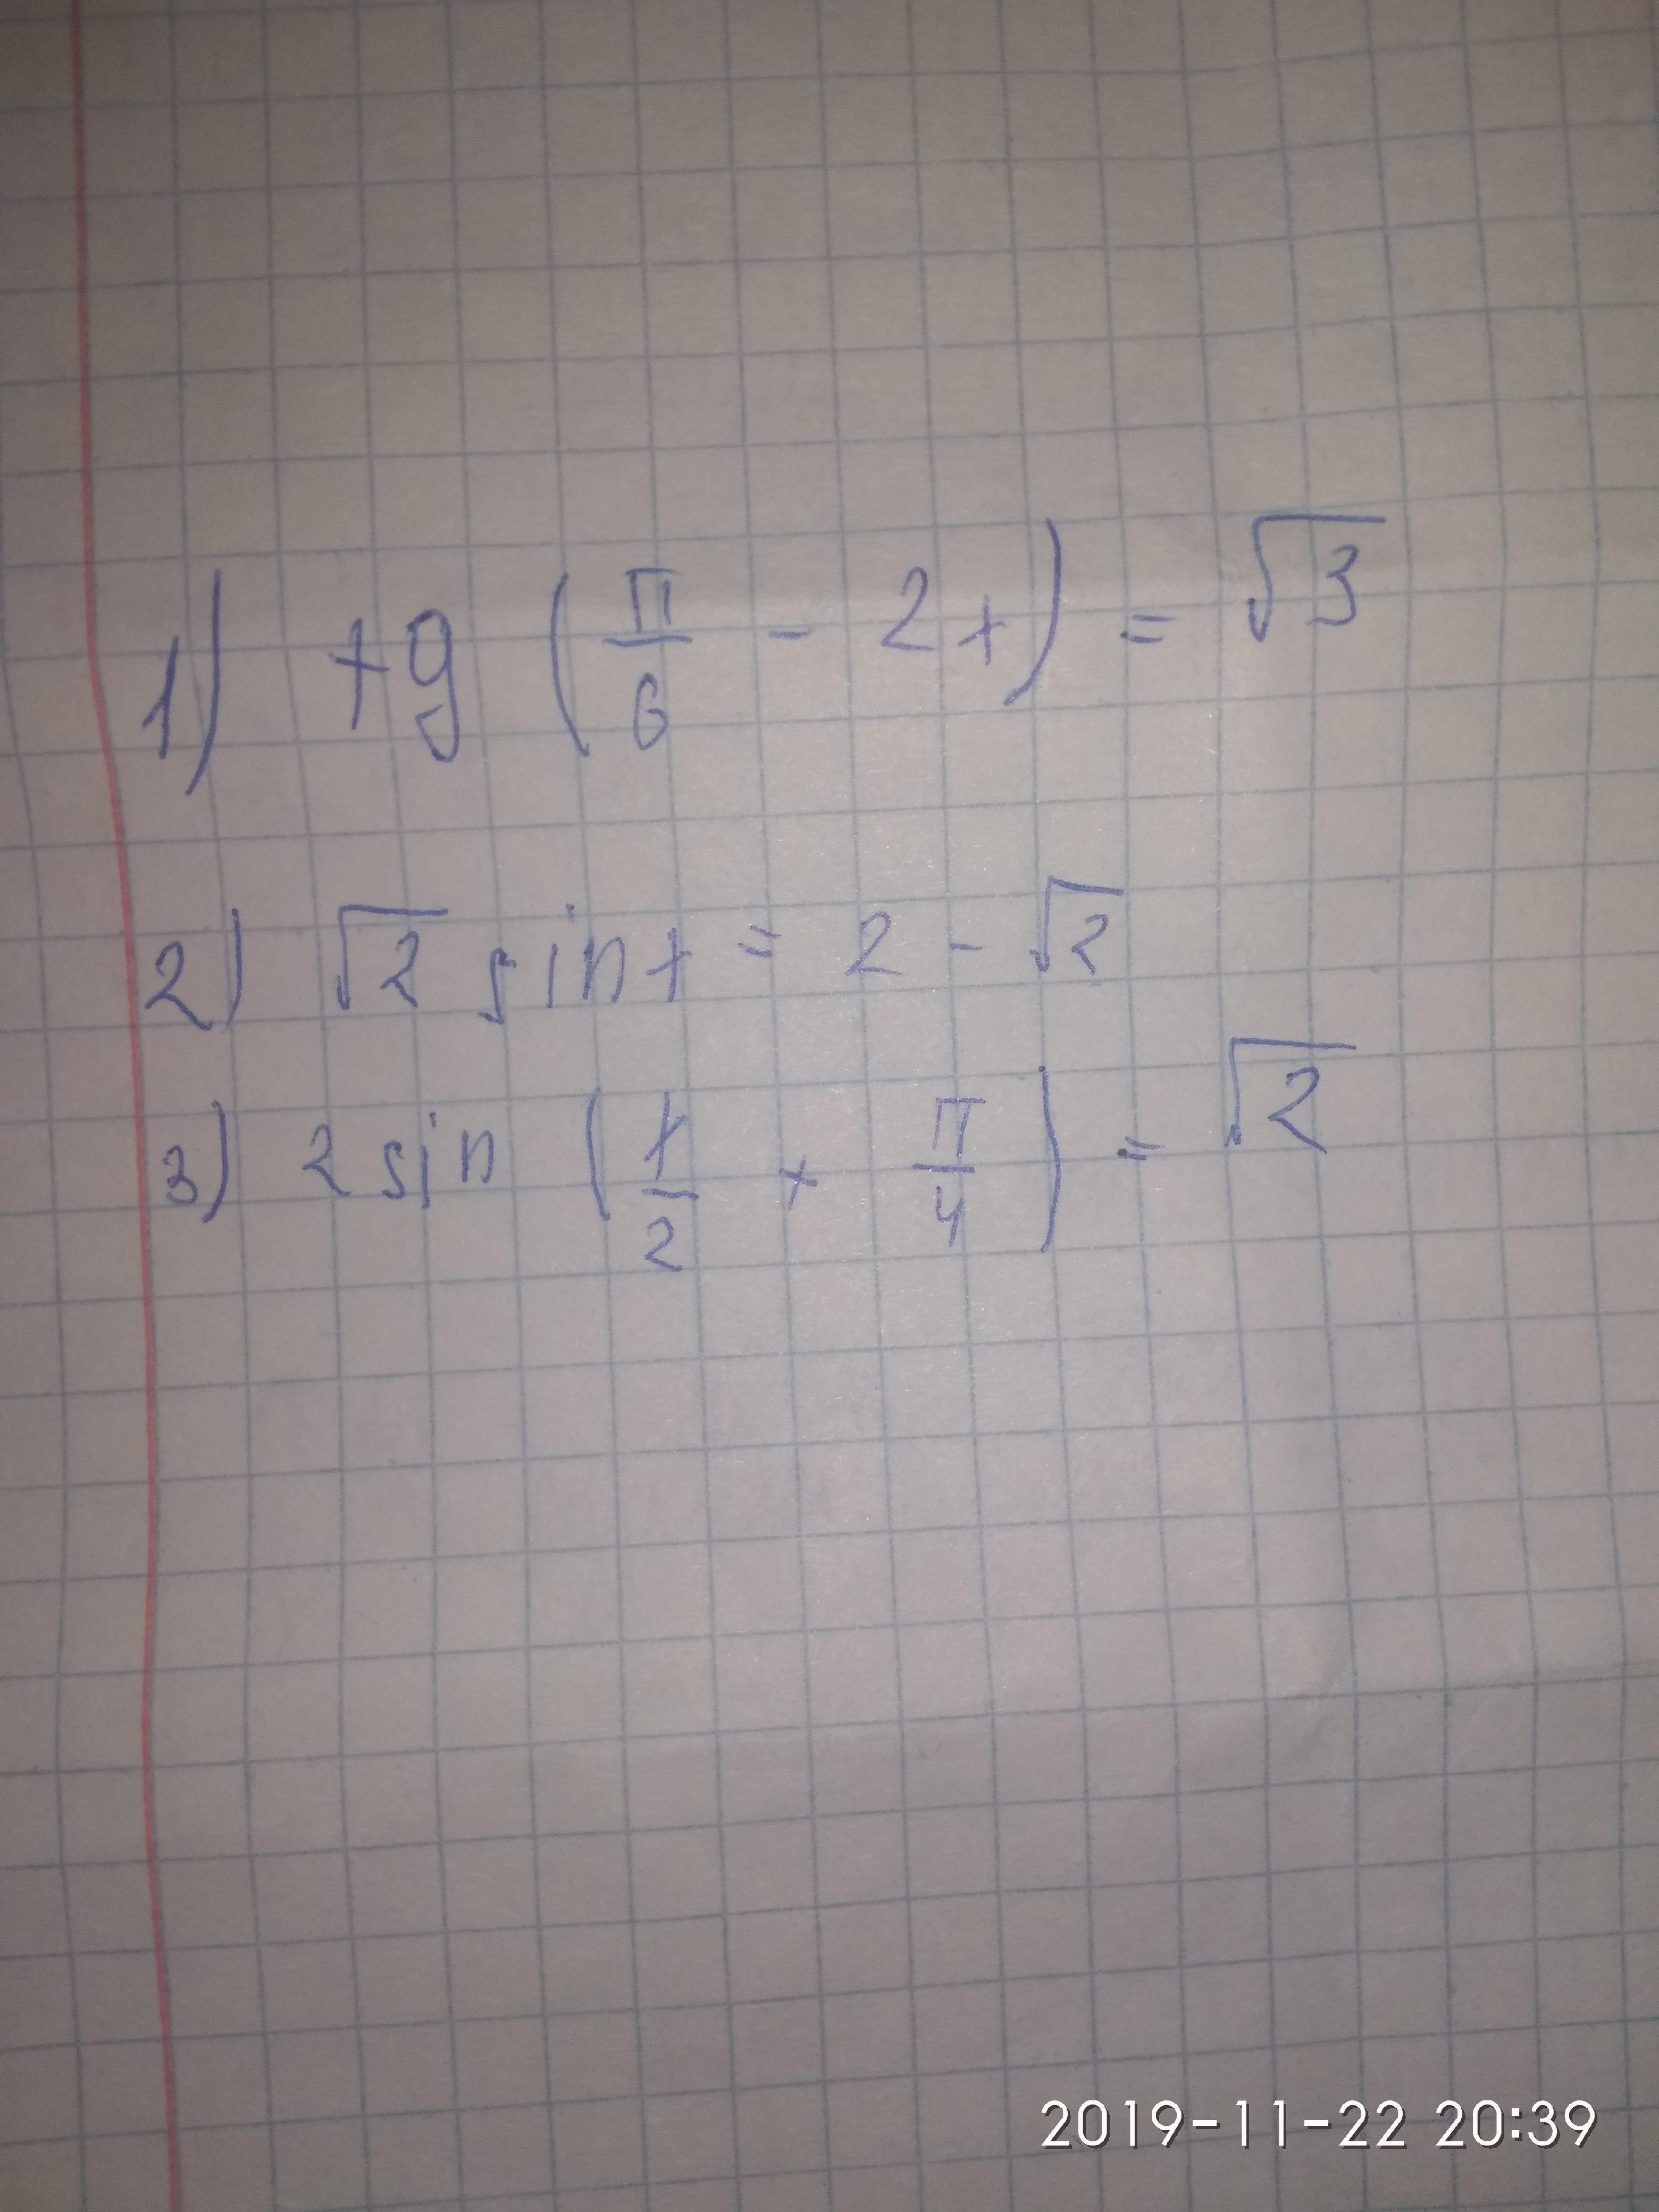 1) tg (π/6 - 2t) = √3
2) √2 sin t = 2 - √2
3) 2 sin (t/2 + π/4) = √2
2019-11-22 20:39